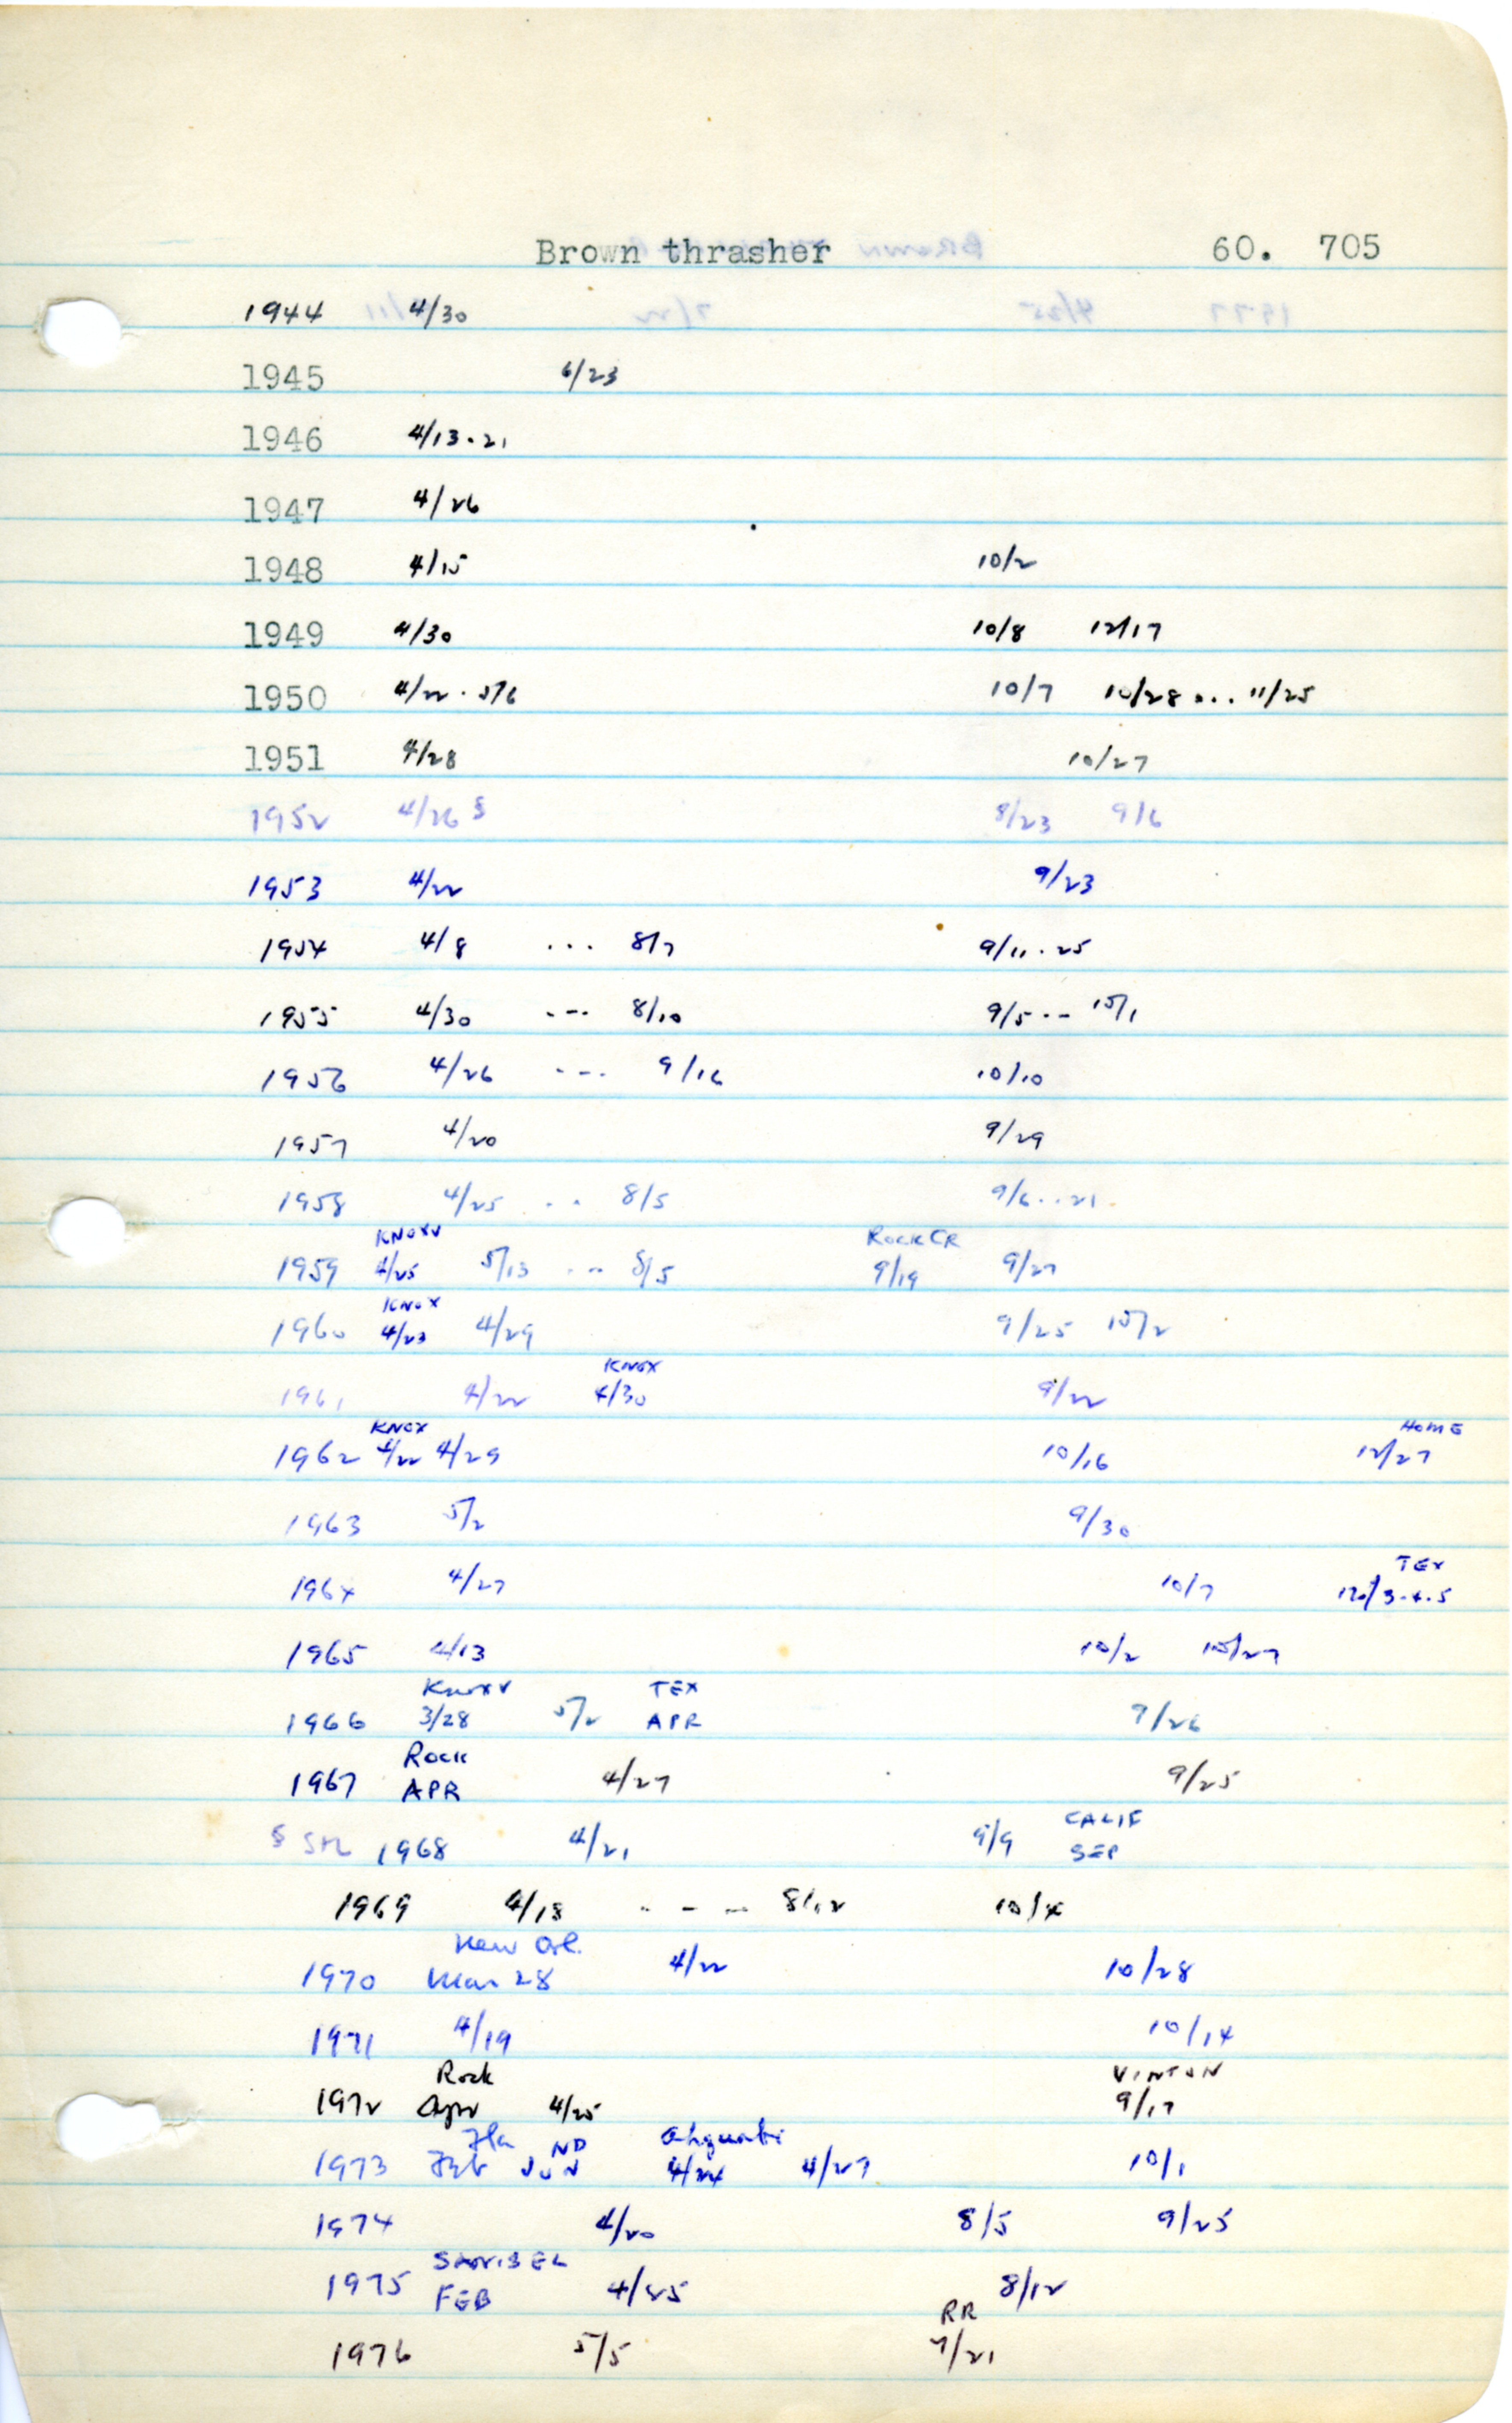 Brown thrasher 60. 705
1944 4/30
1945 6/23
1946 4/13.21
1947 4/26
1948 4/15 10/2
1949 4/30 10/8 12/17
1950 4/22 . 5/6 10/7 10/28 ... 11/25
1951 4/28 10/27
1952 4/26 § 8/23 9/6
1953 4/22 9/23
1954 4/8 ... 8/7 9/11 . 25
1955 4/30 --- 8/10 9/5 -- 10/1
1956 4/26 --- 9/16 10/10
1957 4/20 9/29
1958 4/25 .. 8/5 9/6 .. 21
KNOXV ROCK CR
1959 4/25 5/13 -- 8/5 9/19 9/27
KNOX
1960 4/23 4/29 9/25 10/2
KNOX
1961 4/22 4/30 9/22
KNOX HOME
1962 4/22 4/29 10/16 12/27
1963 5/2 9/30
TEX
1964 4/27 10/7 12/3.4.5
1965 4/13 10/2 10/27
Knoxv TEX
1966 3/28 5/2 APR 9/26
Rock
1967 APR 4/27 9/25
CALIF
§ 1968 4/21 9/9 SEP
1969 4/18 --- 8/12 10/4
New Orl.
1970 Mar 28 4/22 10/28
1971 4/19 10/14
Rock VINTON
1972 Apr 4/25 9/17
Fla ND Ahquabi
1973 Feb JUN 4/24 4/27 10/1
1974 4/20 8/5 9/25
SANIBEL
1975 FEB 4/25 8/12
RR
1976 5/5 7/21